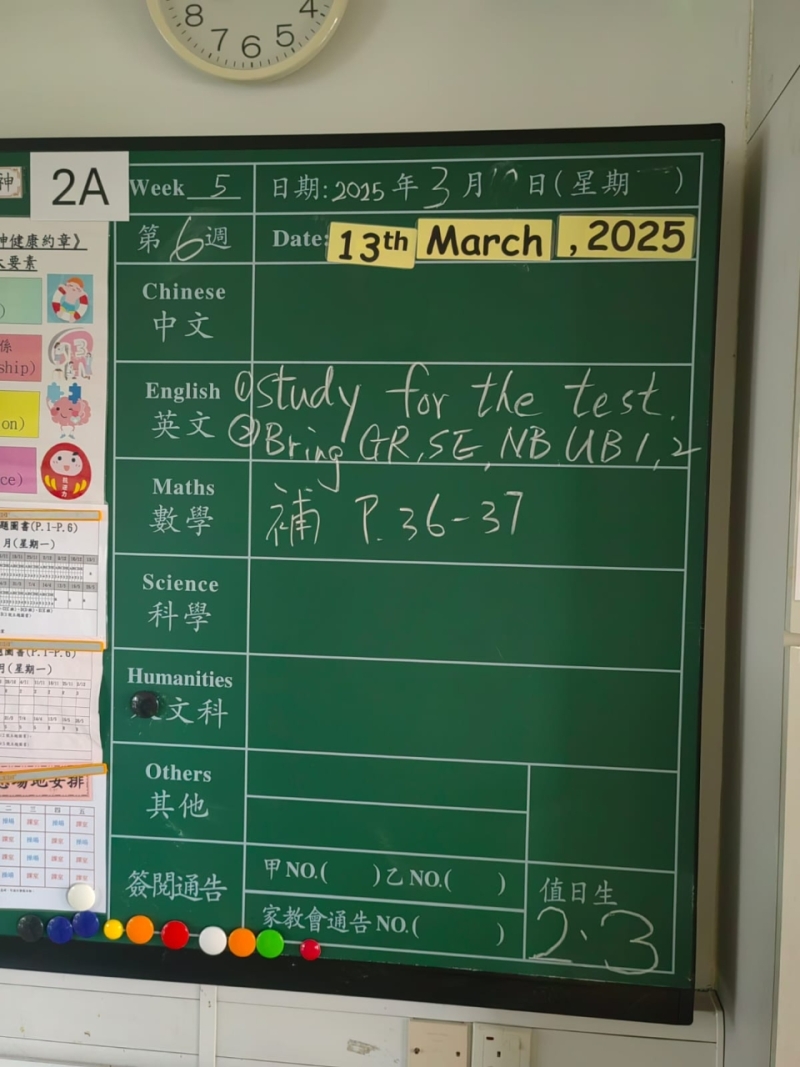 8 7 6 5 4
神
2A
Week 5
日期: 2025 年 3 月 日 (星期 )
第 6 週
Date: 13th March , 2025
神健康約章》
大要素
Chinese
中文
係
ship)
English
英文
① Study for the test.
② Bring GR, SE, NB UB 1, 2
on)
Maths
數學
補 P. 36-37
ce)
題圖書(P.1-P.6)
月(星期一)
Science
科學
題圖書(P.1-P.6)
月(星期一)
Humanities
文科
Others
其他
場地安排
二 三 四 五
簽閱通告
甲NO.( ) 乙NO.( )
家教會通告 NO.( )
值日生
2、3